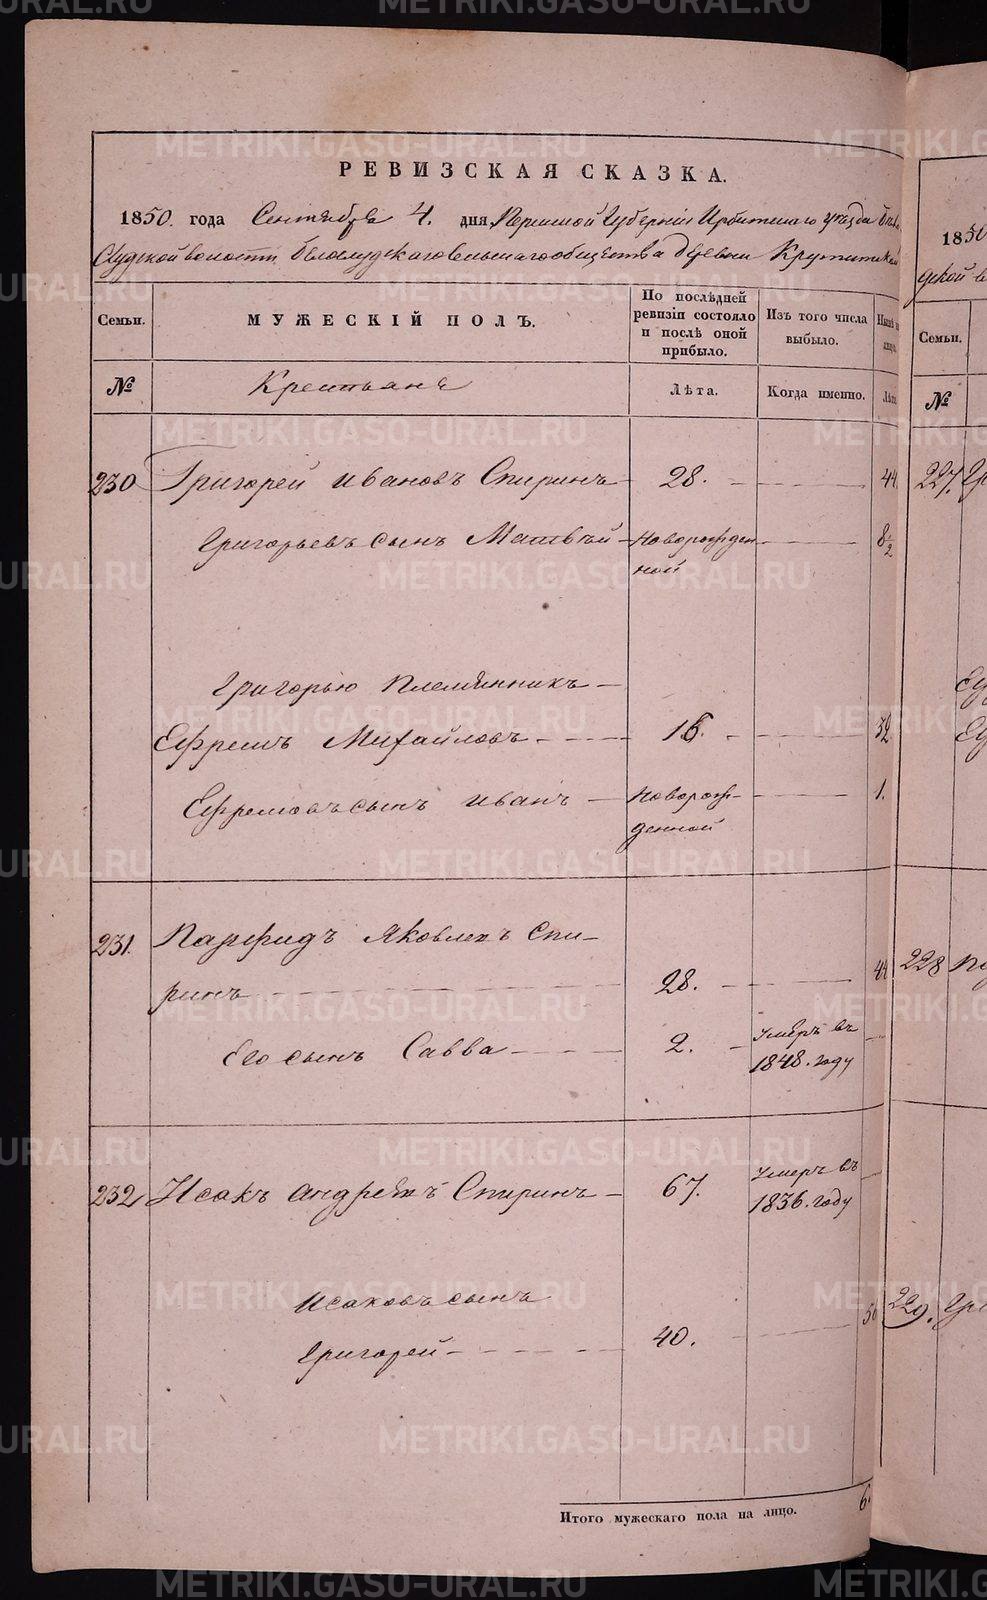 РЕВИЗСКАЯ СКАЗКА.
1850. года Сентября 4. дня, Пермской Губернии Ирбитскаго уезда Бело
Слудской волости Белослудскаго сельскаго общества деревни
Семьи. МУЖЕСКІЙ ПОЛЪ. По послѣдней ревизіи состояло и послѣ оной прибыло. Изъ того числа выбыло.
№ Крестьянъ Лѣта. Когда именно. Лѣта
230 Григорей Ивановъ Спиринъ 28. 44.
Григорьевъ сынъ Матвѣй Новорожден 8 1/2
ной
Григорью племянникъ
Ефремъ Михайловъ 16. 32
Ефремовъ сынъ Иванъ Новорож- 1.
денной
231. Парфидъ Яковлевъ Спи-
ринъ 28. 44
Его сынъ Савва 2. Умеръ въ
1848. году
232 Исакъ Андреевъ Спиринъ 67. Умеръ въ
1836. году
Исаковъ сынъ
Григорей 40. 56
Итого мужескаго пола на лицо. 6
1850
Семьи.
№
227.
228
229.
METRIKI.GASO-URAL.RU